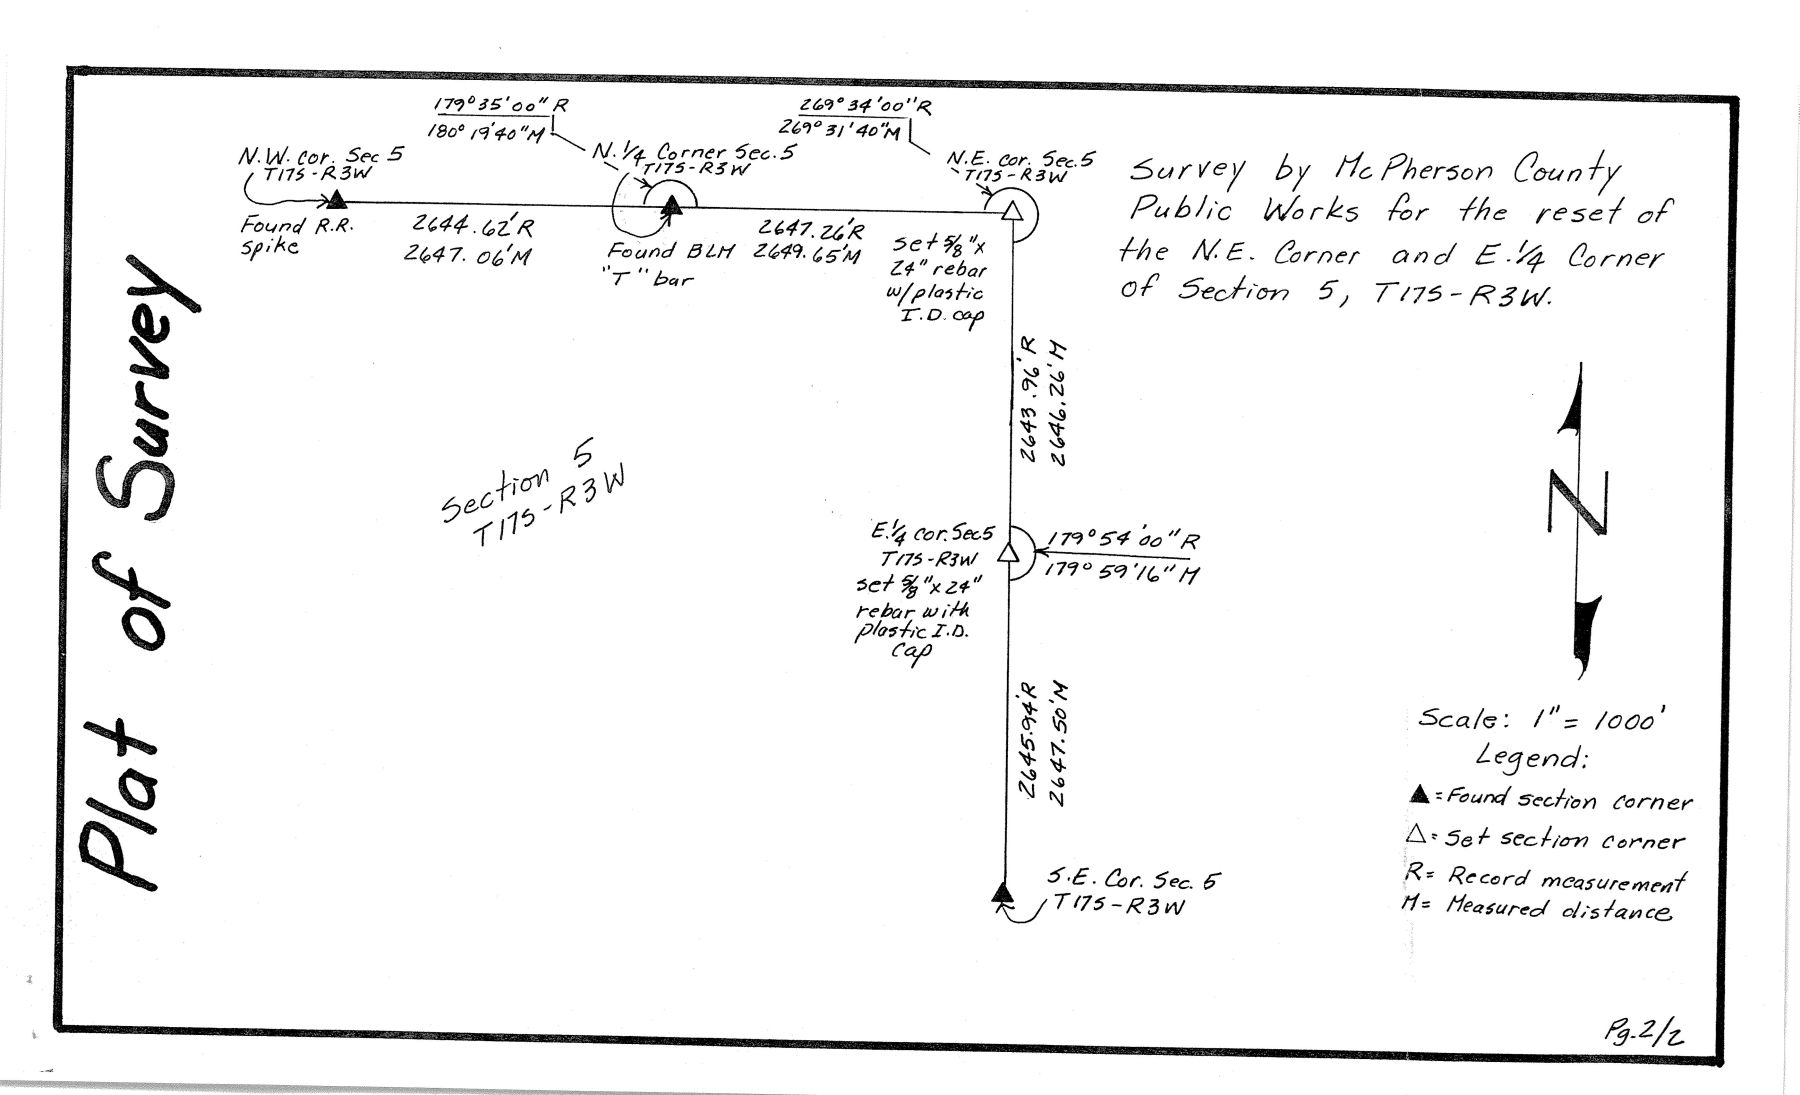 Plat of Survey
179°35'00" R
180° 19'40" M
269°34'00" R
269°31'40" M
N.W. cor. Sec 5
T17S-R3W
N.1/4 Corner Sec.5
T17S-R3W
N.E. cor. Sec.5
T17S-R3W
Found R.R.
spike
2644.62'R
2647.06'M
Found BLM
"T" bar
2647.26'R
2649.65'M
set 5/8"x
24" rebar
w/plastic
I.D. cap
Survey by McPherson County
Public Works for the reset of
the N.E. Corner and E.1/4 Corner
of Section 5, T17S-R3W.
2643.96'R
2646.26'M
Section 5
T17S-R3W
E.1/4 cor.Sec5
T17S-R3W
set 5/8"x24"
rebar with
plastic I.D.
cap
179°54'00" R
179°59'16" M
N
2645.94'R
2647.50'M
S.E. Cor. Sec. 5
T17S-R3W
Scale: 1"= 1000'
Legend:
▲=Found section corner
△=Set section corner
R= Record measurement
M= Measured distance
Pg.2/2